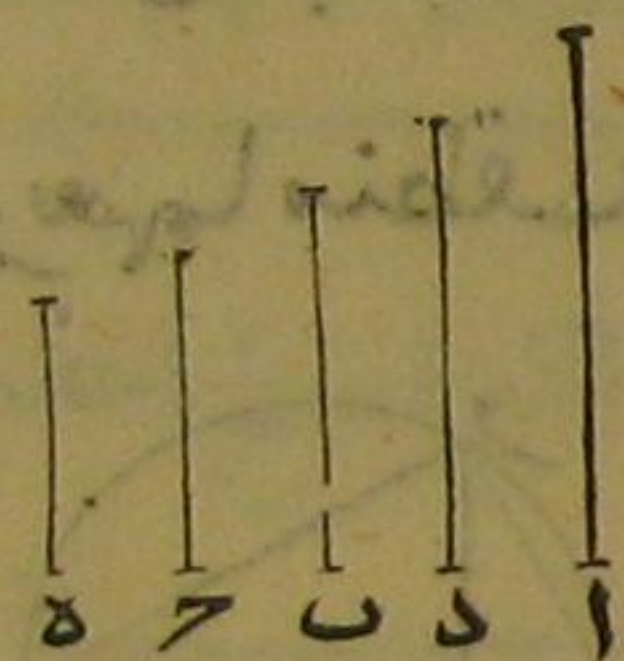 ا د ب ح ه